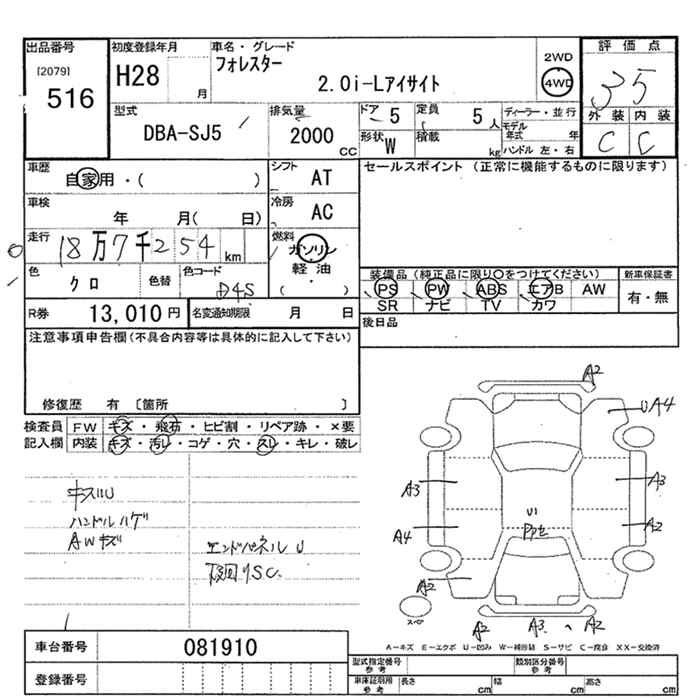 出品番号 初度登録年月 車名・グレード 2WD 評価点
[2079] 516 H28 月 フォレスター 2.0i-Lアイサイト 4WD 3 5
型式 DBA-SJ5 排気量 2000 CC ドア 5 定員 5 人 ディーラー・並行 外装 内装
形状 W 積載 kg モデル年式 年 ハンドル 左・右 C C
車歴 自家用・( ) シフト AT セールスポイント (正常に機能するものに限ります)
車検 年 月( 日) 冷房 AC
走行 18万7千254 km 燃料 ガソリン 軽油 ( ・ )
色 クロ 色替 色コード D4S 装備品(純正品に限り○をつけてください) 新車保証書
PS PW ABS エアB AW 有・無
SR ナビ TV カワ
R券 13,010円 名変通知期限 月 日 後日品
注意事項申告欄(不具合内容等は具体的に記入して下さい)
修復歴 有 〔箇所 〕
検査員 FW キズ・飛石・ヒビ割・リペア跡・×要
記入欄 内装 キズ・汚レ・コゲ・穴・スレ・キレ・破レ
キズU
ハンドルハゲ
AWキズ
エンドパネルU
下回りSC
A2
UA4
A3 A3
A4 A2
U1
A2
A2 A3 A2
スペア
A-キズ E-エクボ U-凹み W-補修跡 S-サビ C-腐食 XX-交換済
車台番号 081910
登録番号
型式指定番号 参考 類別区分番号 参考
車庫証明用 参考 長さ cm 幅 cm 高さ cm